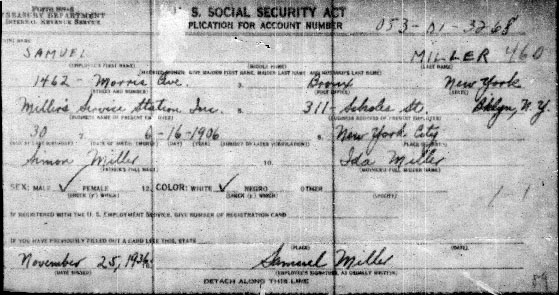 FORM SS-5
TREASURY DEPARTMENT
INTERNAL REVENUE SERVICE
S. SOCIAL SECURITY ACT
PLICATION FOR ACCOUNT NUMBER
053-01-3268
SAMUEL MILLER 460
(EMPLOYEE'S FIRST NAME) (MIDDLE NAME) (LAST NAME)
1462 - Morris Ave. 3. Bronx New York
(STREET AND NUMBER) (STATE)
Miller's Service Station Inc. 311- Scholes St. Bklyn, N.Y.
30 7. 6-16-1906 8. New York City
(AGE AT LAST BIRTHDAY) (DATE OF BIRTH: (MONTH) (DAY) (YEAR) (SUBJECT TO LATER VERIFICATION)
Simon Miller 10. Ida Miller
(FATHER'S FULL NAME) (MOTHER'S FULL MAIDEN NAME)
SEX: MALE ✓ FEMALE 12. COLOR: WHITE ✓ NEGRO OTHER
(CHECK (✓) WHICH) (CHECK (✓) WHICH) (SPECIFY)
IF REGISTERED WITH THE U. S. EMPLOYMENT SERVICE, GIVE NUMBER OF REGISTRATION CARD
IF YOU HAVE PREVIOUSLY FILLED OUT A CARD LIKE THIS, STATE
(PLACE) (DATE)
November 25, 1936 Samuel Miller
(DATE SIGNED) (EMPLOYEE'S SIGNATURE, AS USUALLY WRITTEN)
DETACH ALONG THIS LINE